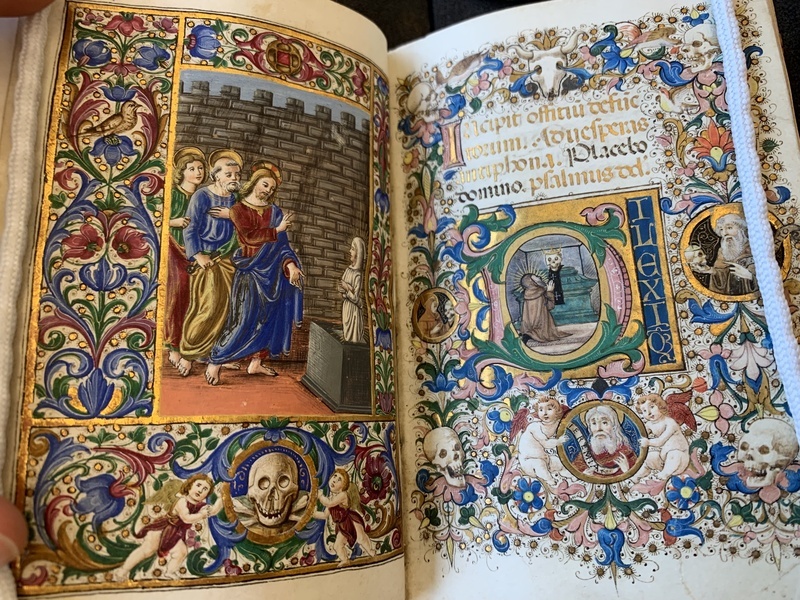 Incipit offitiu defuc
torum. Aduesperas
antiphona. Placebo
domino. psalmus del.
DILEXIQ